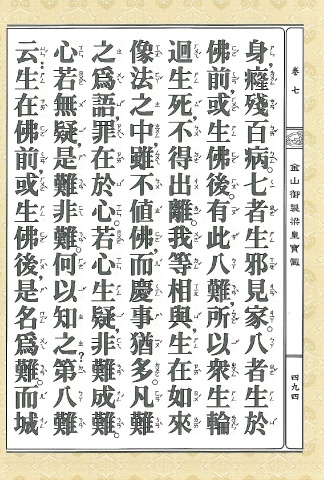 卷七
金山御製梁皇寶懺
四九四
身癃殘百病。七者生邪見家。八者生於
佛前,或生佛後。有此八難,所以衆生輪
迴生死,不得出離。我等相與,生在如來
像法之中,雖不值佛而慶事猶多。凡難
之爲語,罪在於心。若心生疑,非難成難。
心若無疑,是難非難。何以知之?第八難
云:生在佛前,或生佛後,是名爲難。而城